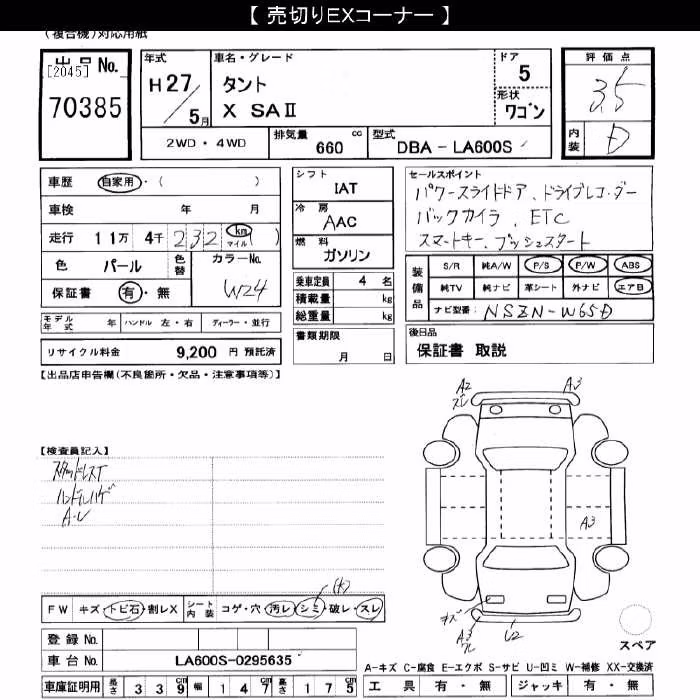 【 売切りEXコーナー 】
(複合機)対応用紙
出品 No.
[2045]
70385
年式
H27/5月
車名・グレード
タント
X SAⅡ
ドア
5
形状
ワゴン
評価点
3.5
内装
D
2WD・4WD
排気量 660 cc
型式 DBA - LA600S
車歴 自家用・( )
車検 年 月
走行 11万 4千 232 km マイル ( )
色 パール
色替
カラーNo.
W24
保証書 有・無
シフト
IAT
冷房
AAC
燃料
ガソリン
乗車定員 4 名
積載量 kg
総重量 kg
書類期限
月 日
セールスポイント
パワースライドドア、ドライブレコーダー
バックカメラ、ETC
スマートキー、プッシュスタート
装備品
S/R 純A/W P/S P/W ABS
純TV 純ナビ 革シート 外ナビ エアB
ナビ型番: NSZN-W65D
モデル年式 年 ハンドル 左・右 ディーラー・並行
リサイクル料金 9,200 円 預託済
後日品
保証書 取説
【出品店申告欄(不良箇所・欠品・注意事項等)】
A2
スレ
A3
【検査員記入】
スタッドレスT
ハンドルハゲ
A・U
A3
(大)
FW キズ・トビ石・割レX
シート内装 コゲ・穴・汚レ・シミ・破レ・スレ
キズ
A3
U2
スペア
登録 No.
車台 No. LA600S-0295635
車庫証明用 長さ 339cm 幅 147cm 高さ 175cm
A-キズ C-腐食 E-エクボ S-サビ U-凹ミ W-補修 XX-交換済
工具 有・無 ジャッキ 有・無